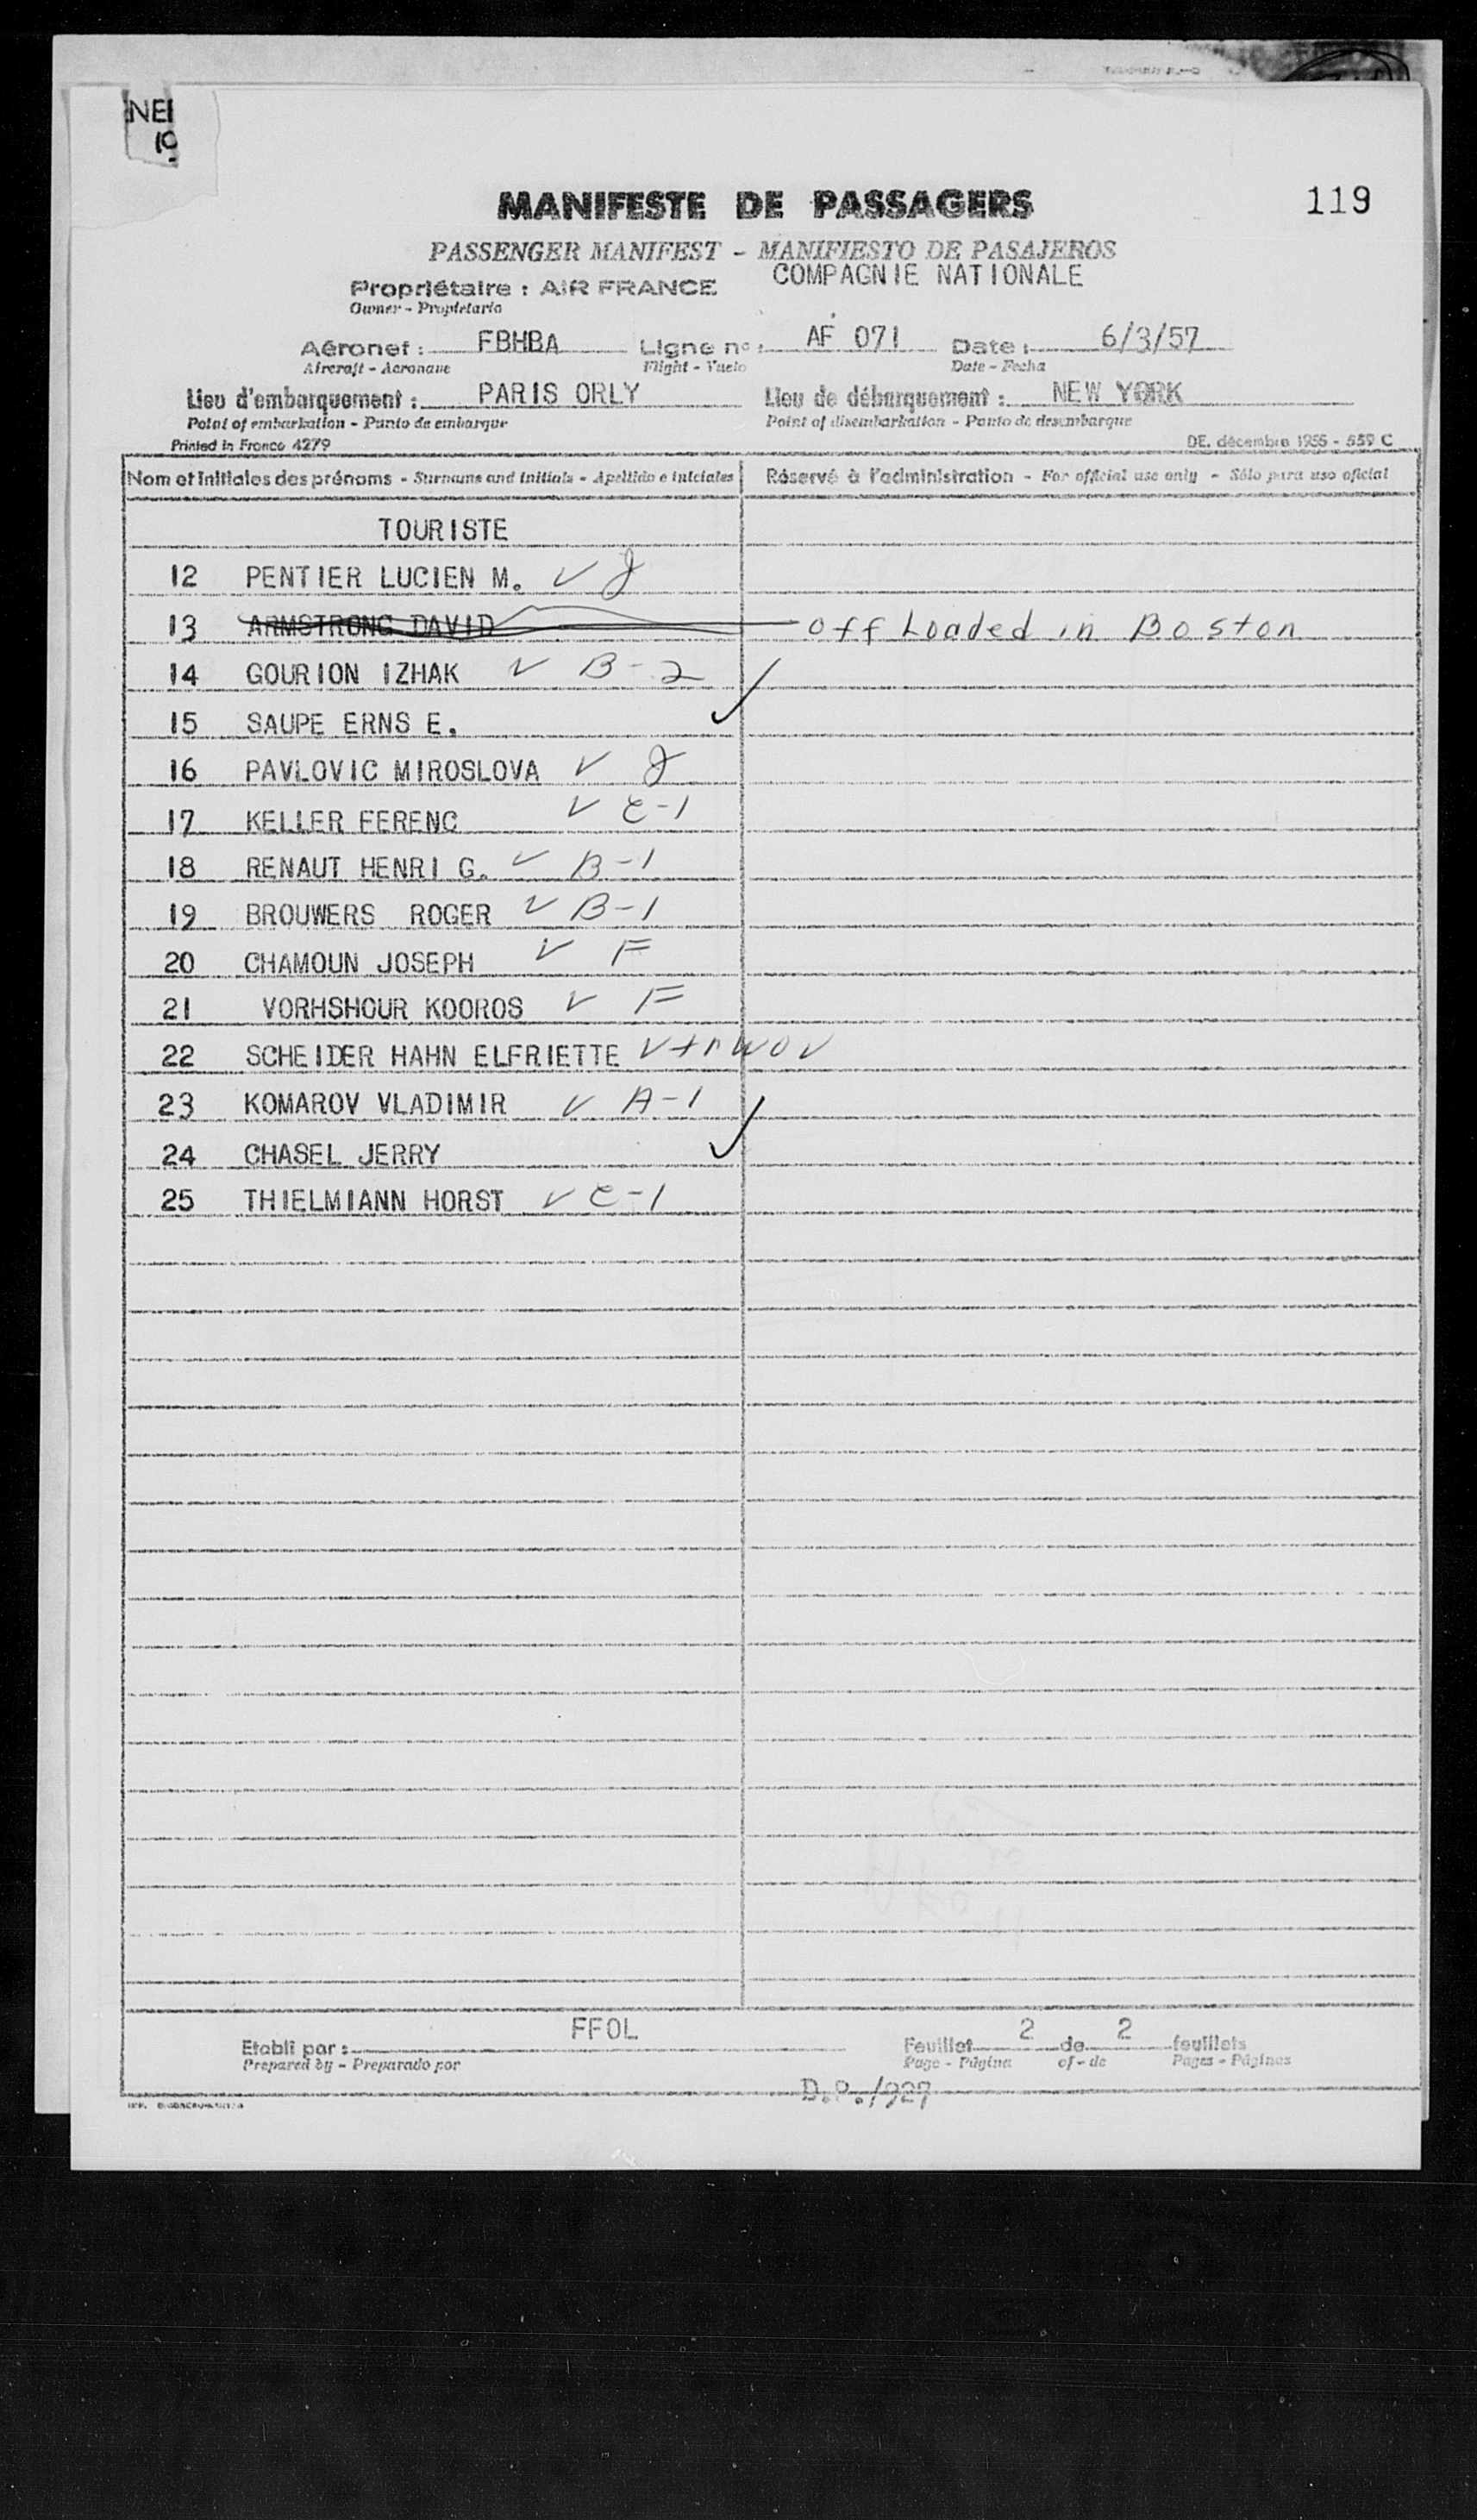 NEI
10
MANIFESTE DE PASSAGERS 119
PASSENGER MANIFEST - MANIFIESTO DE PASAJEROS
COMPAGNIE NATIONALE
Propriétaire : AIR FRANCE
Owner - Propietario
Aéronef : FBHBA Ligne n° : AF 071 Date : 6/3/57
Aircraft - Aeronave Flight - Vuelo Date - Fecha
Lieu d'embarquement : PARIS ORLY Lieu de débarquement : NEW YORK
Point of embarkation - Punto de embarque Point of disembarkation - Punto de desembarque
Printed in France 4279 DE. décembre 1955 - 559 C
Nom et Initiales des prénoms - Surname and initials - Apellido e iniciales Réservé à l'administration - For official use only - Sólo para uso oficial
TOURISTE
12 PENTIER LUCIEN M. ✓ J
13 ARMSTRONG DAVID off Loaded in Boston
14 GOURION IZHAK ✓ B-2
15 SAUPE ERNS E. ✓
16 PAVLOVIC MIROSLOVA ✓ J
17 KELLER FERENC ✓ C-1
18 RENAUT HENRI G. ✓ B-1
19 BROUWERS ROGER ✓ B-1
20 CHAMOUN JOSEPH ✓ F
21 VORHSHOUR KOOROS ✓ F
22 SCHEIDER HAHN ELFRIETTE ✓ trwov
23 KOMAROV VLADIMIR ✓ A-1
24 CHASEL JERRY ✓
25 THIELMIANN HORST ✓ C-1
FFOL
Etabli par : Feuillet 2 de 2 feuillets
Prepared by - Preparado por Page - Página of - de Pages - Páginas
D.P./927